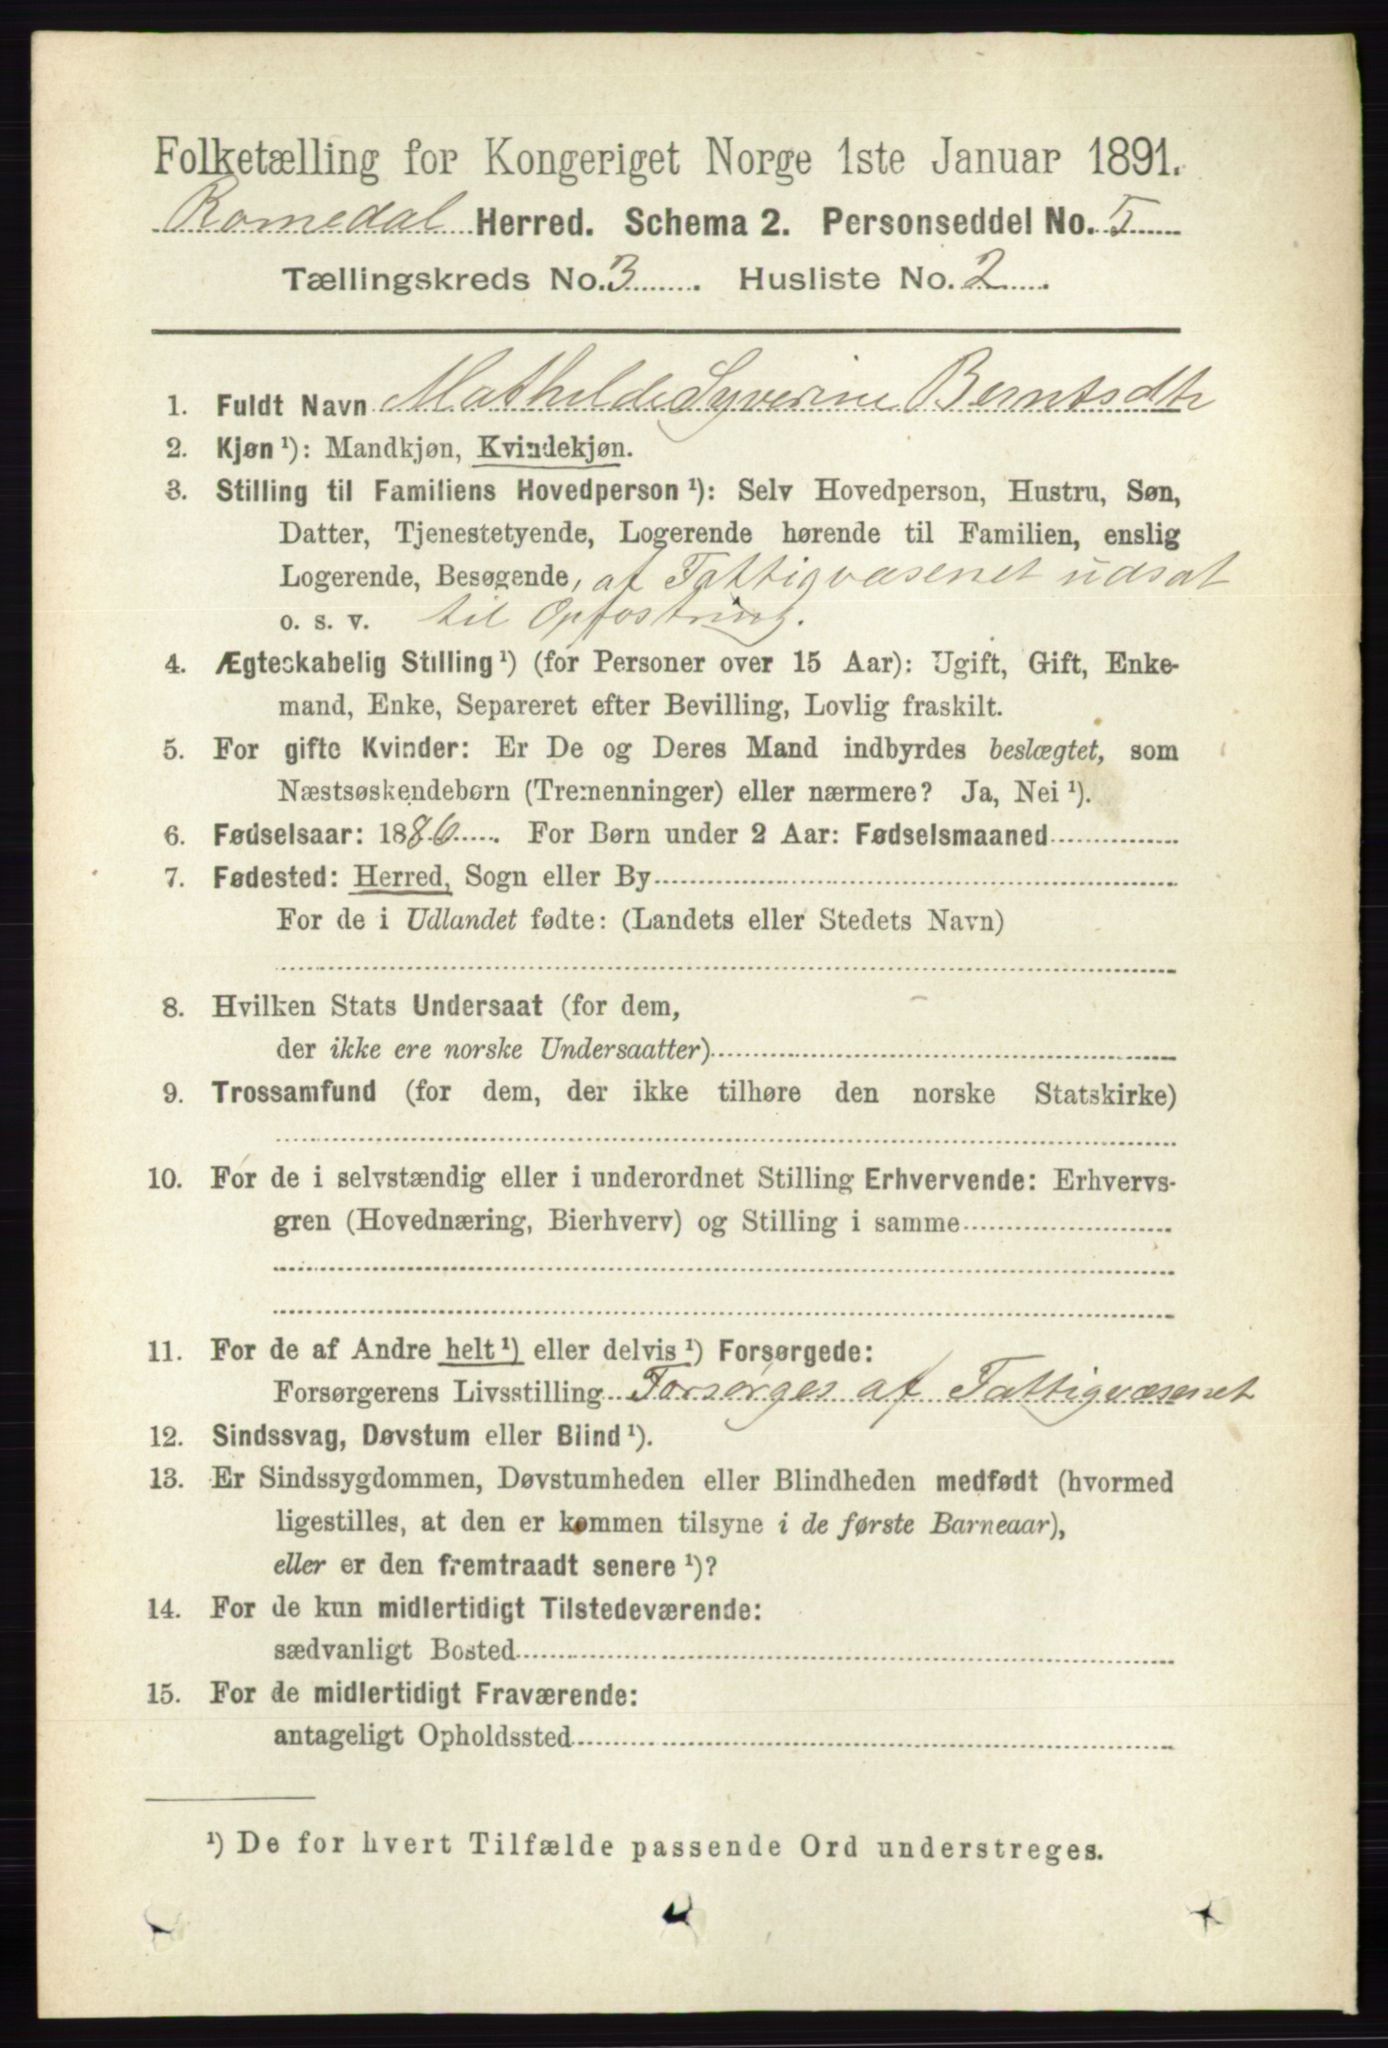 Folketælling for Kongeriget Norge 1ste Januar 1891.
Romedal Herred. Schema 2. Personseddel No. 5
Tællingskreds No. 3. Husliste No. 2.
1. Fuldt Navn Mathilde Syverine Berntsdtr
2. Kjøn ¹): Mandkjøn, Kvindekjøn.
3. Stilling til Familiens Hovedperson ¹): Selv Hovedperson, Hustru, Søn,
Datter, Tjenestetyende, Logerende hørende til Familien, enslig
Logerende, Besøgende, af Fattigvæsenet udsat
o. s. v. til Opfostring.
4. Ægteskabelig Stilling ¹) (for Personer over 15 Aar): Ugift, Gift, Enke-
mand, Enke, Separeret efter Bevilling, Lovlig fraskilt.
5. For gifte Kvinder: Er De og Deres Mand indbyrdes beslægtet, som
Næstsøskendebørn (Tremenninger) eller nærmere? Ja, Nei ¹).
6. Fødselsaar: 1886. For Børn under 2 Aar: Fødselsmaaned
7. Fødested: Herred, Sogn eller By
For de i Udlandet fødte: (Landets eller Stedets Navn)
8. Hvilken Stats Undersaat (for dem,
der ikke ere norske Undersaatter)
9. Trossamfund (for dem, der ikke tilhøre den norske Statskirke)
10. For de i selvstændig eller i underordnet Stilling Erhvervende: Erhvervs-
gren (Hovednæring, Bierhverv) og Stilling i samme
11. For de af Andre helt ¹) eller delvis ¹) Forsørgede:
Forsørgerens Livsstilling Forsørges af Fattigvæsenet
12. Sindssvag, Døvstum eller Blind ¹).
13. Er Sindssygdommen, Døvstumheden eller Blindheden medfødt (hvormed
ligestilles, at den er kommen tilsyne i de første Barneaar),
eller er den fremtraadt senere ¹)?
14. For de kun midlertidigt Tilstedeværende:
sædvanligt Bosted
15. For de midlertidigt Fraværende:
antageligt Opholdssted
¹) De for hvert Tilfælde passende Ord understreges.